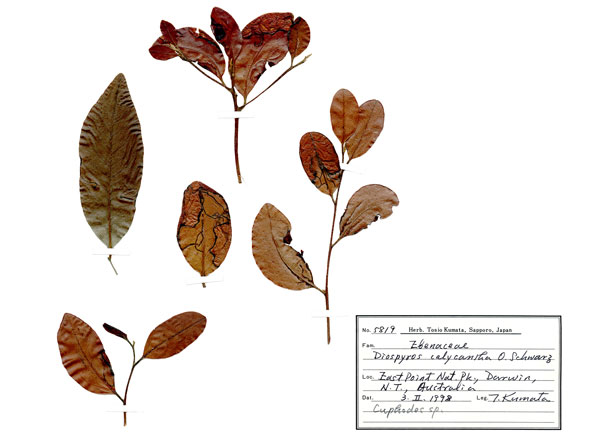 No. 5819 Herb. Tosio Kumata, Sapporo, Japan
Fam. Ebenaceae
Diospyros calycantha O. Schwarz
Loc. East Point Nat. Pk., Darwin,
N.T., Australia
Dat. 3. II. 1998 Leg. T. Kumata
Cuphodes sp.